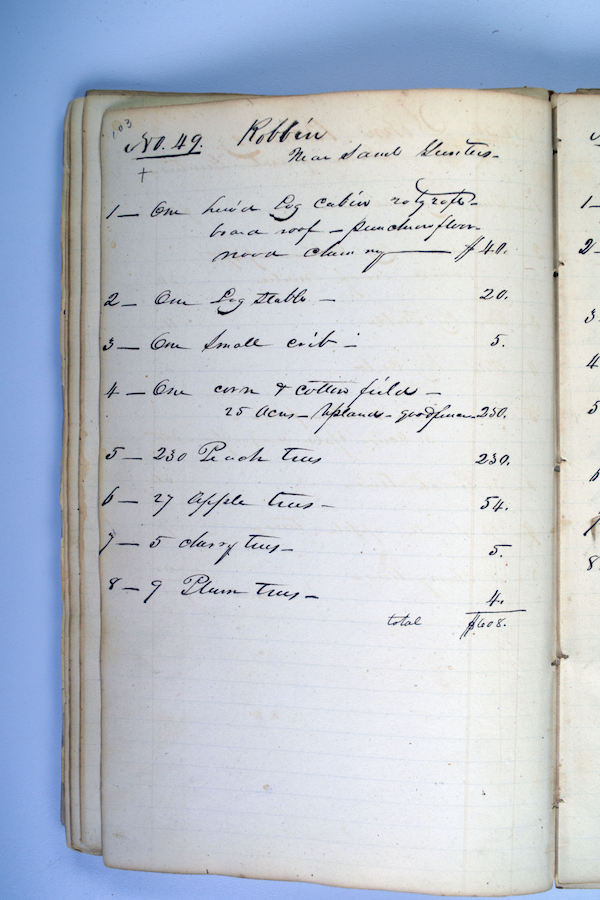 103
No. 49. Robbin
Near Saml Gunters -
1 - One hew'd Log cabin
board roof - puncheon floor
wood chimny $40.
2 - One Log stable - 20.
3 - One small crib - 5.
4 - One corn & cotton field -
25 Acres - Upland - good fence 250.
5 - 230 Peach trees 230.
6 - 27 Apple trees - 54.
7 - 5 cherry trees - 5.
8 - 9 Plum trees - 4.
total $608.
1 -
2 -
3
4
5
6
7
8